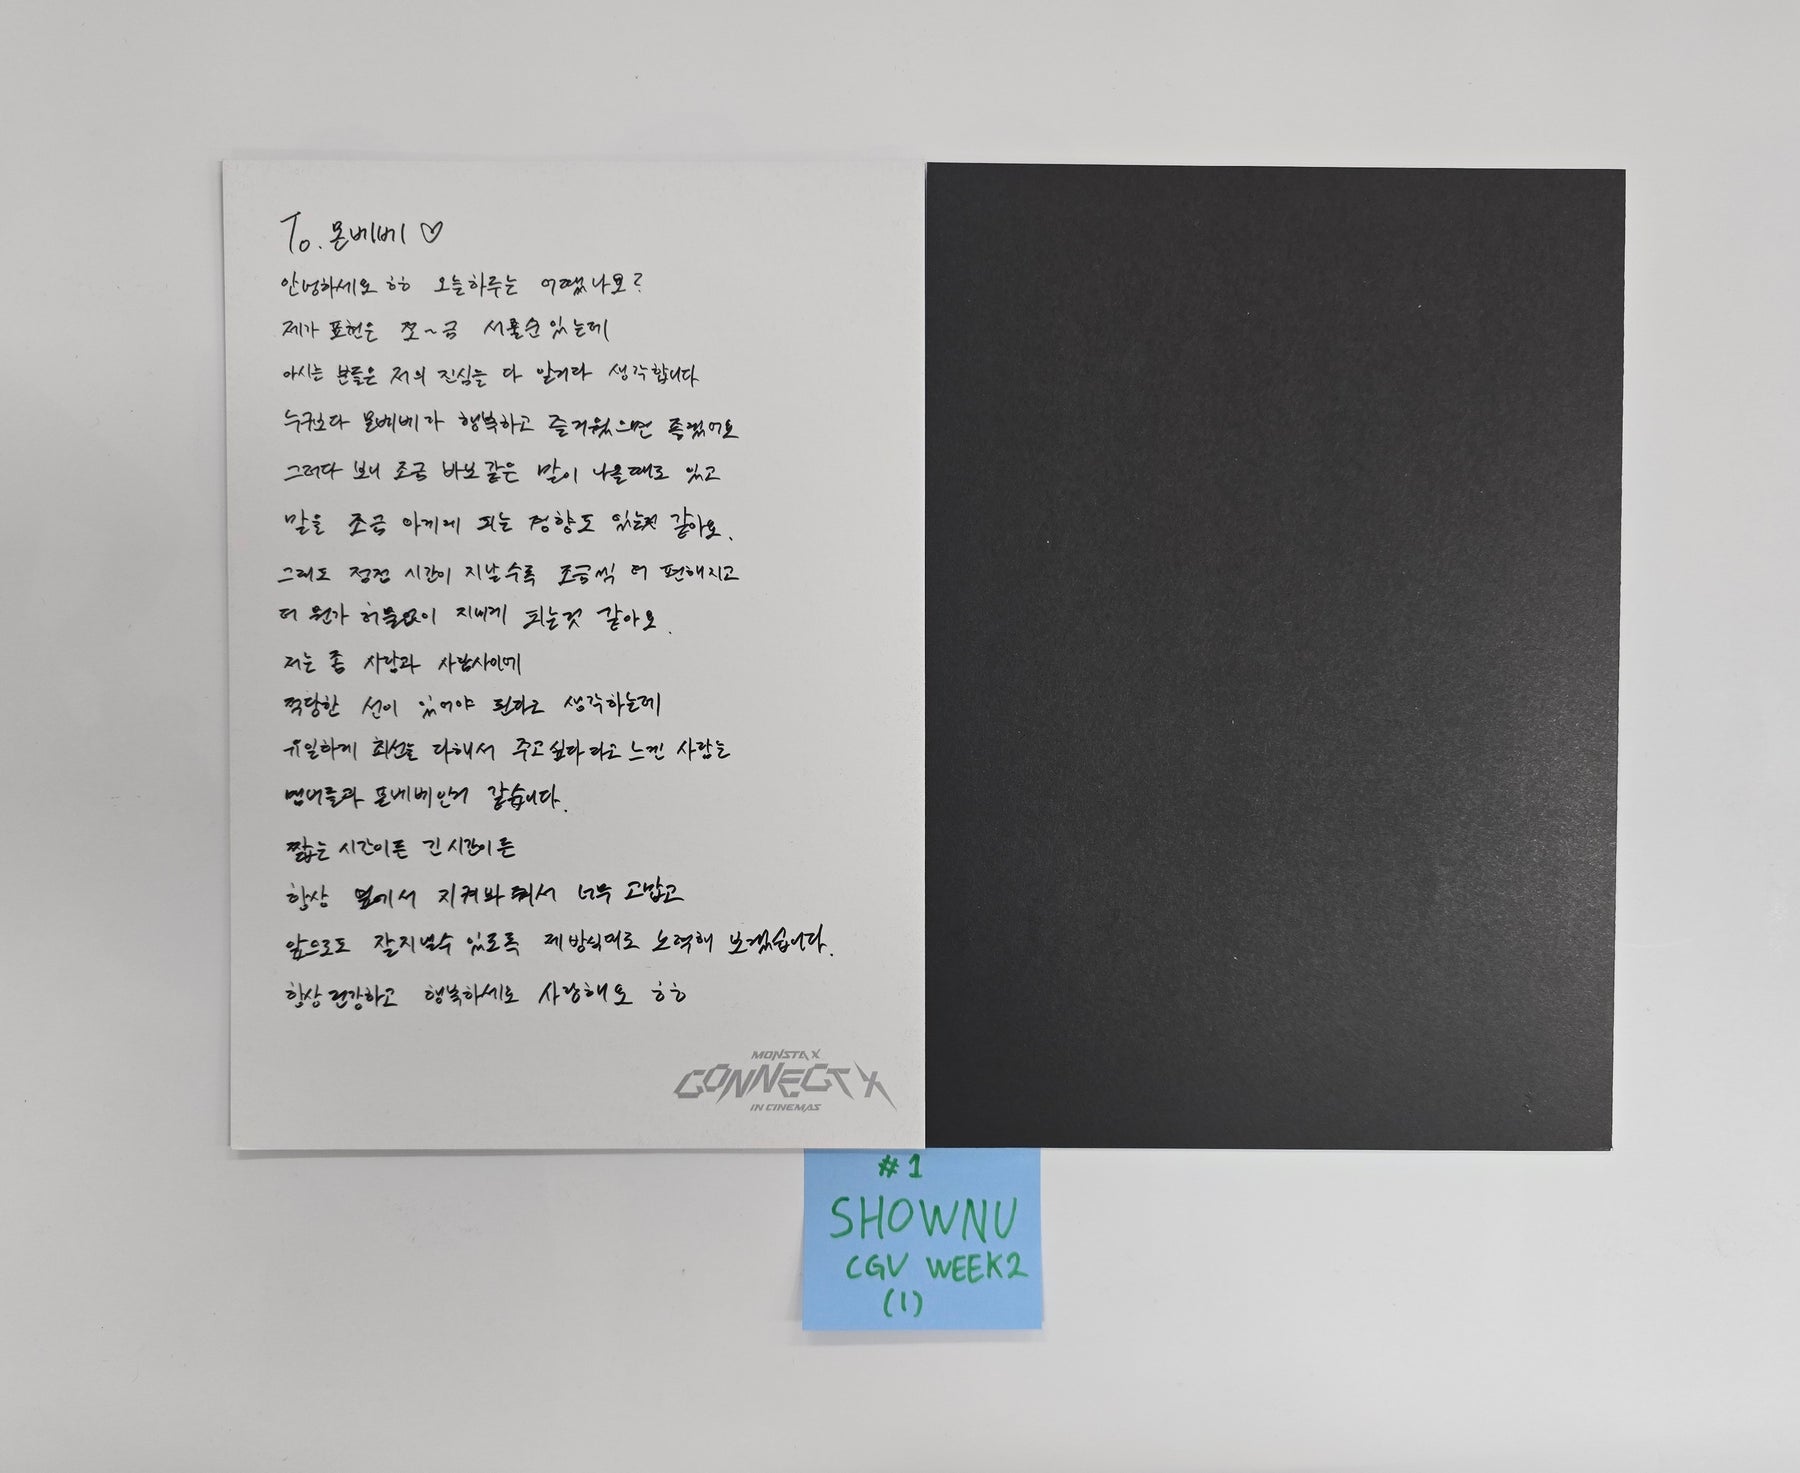 To. 몬베베 ♡
안녕하세요 ㅎㅎ 오늘하루는 어땠나요?
제가 표현은 쪼~금 서툴순 있는데
아시는 분들은 저의 진심을 다 알거라 생각합니다
누구보다 몬베베가 행복하고 즐거웠으면 좋겠어요
그러다 보니 조금 바보같은 말이 나올때도 있고
말을 조금 아끼게 되는 경향도 있는것 같아요.
그래도 점점 시간이 지날수록 조금씩 더 편해지고
더 뭔가 허물없이 지내게 되는것 같아요.
저는 좀 사람과 사람사이에
적당한 선이 있어야 된다고 생각하는데
유일하게 최선을 다해서 주고싶다라고 느낀 사람은
멤버들과 몬베베인거 같습니다.
짧은 시간이든 긴 시간이든
항상 옆에서 지켜봐줘서 너무 고맙고
앞으로도 잘지낼수 있도록 제방식대로 노력해 보겠습니다.
항상 건강하고 행복하세요 사랑해요 ㅎㅎ
MONSTA X
CONNECT X
IN CINEMAS
#1
SHOWNU
CGV WEEK2
(1)